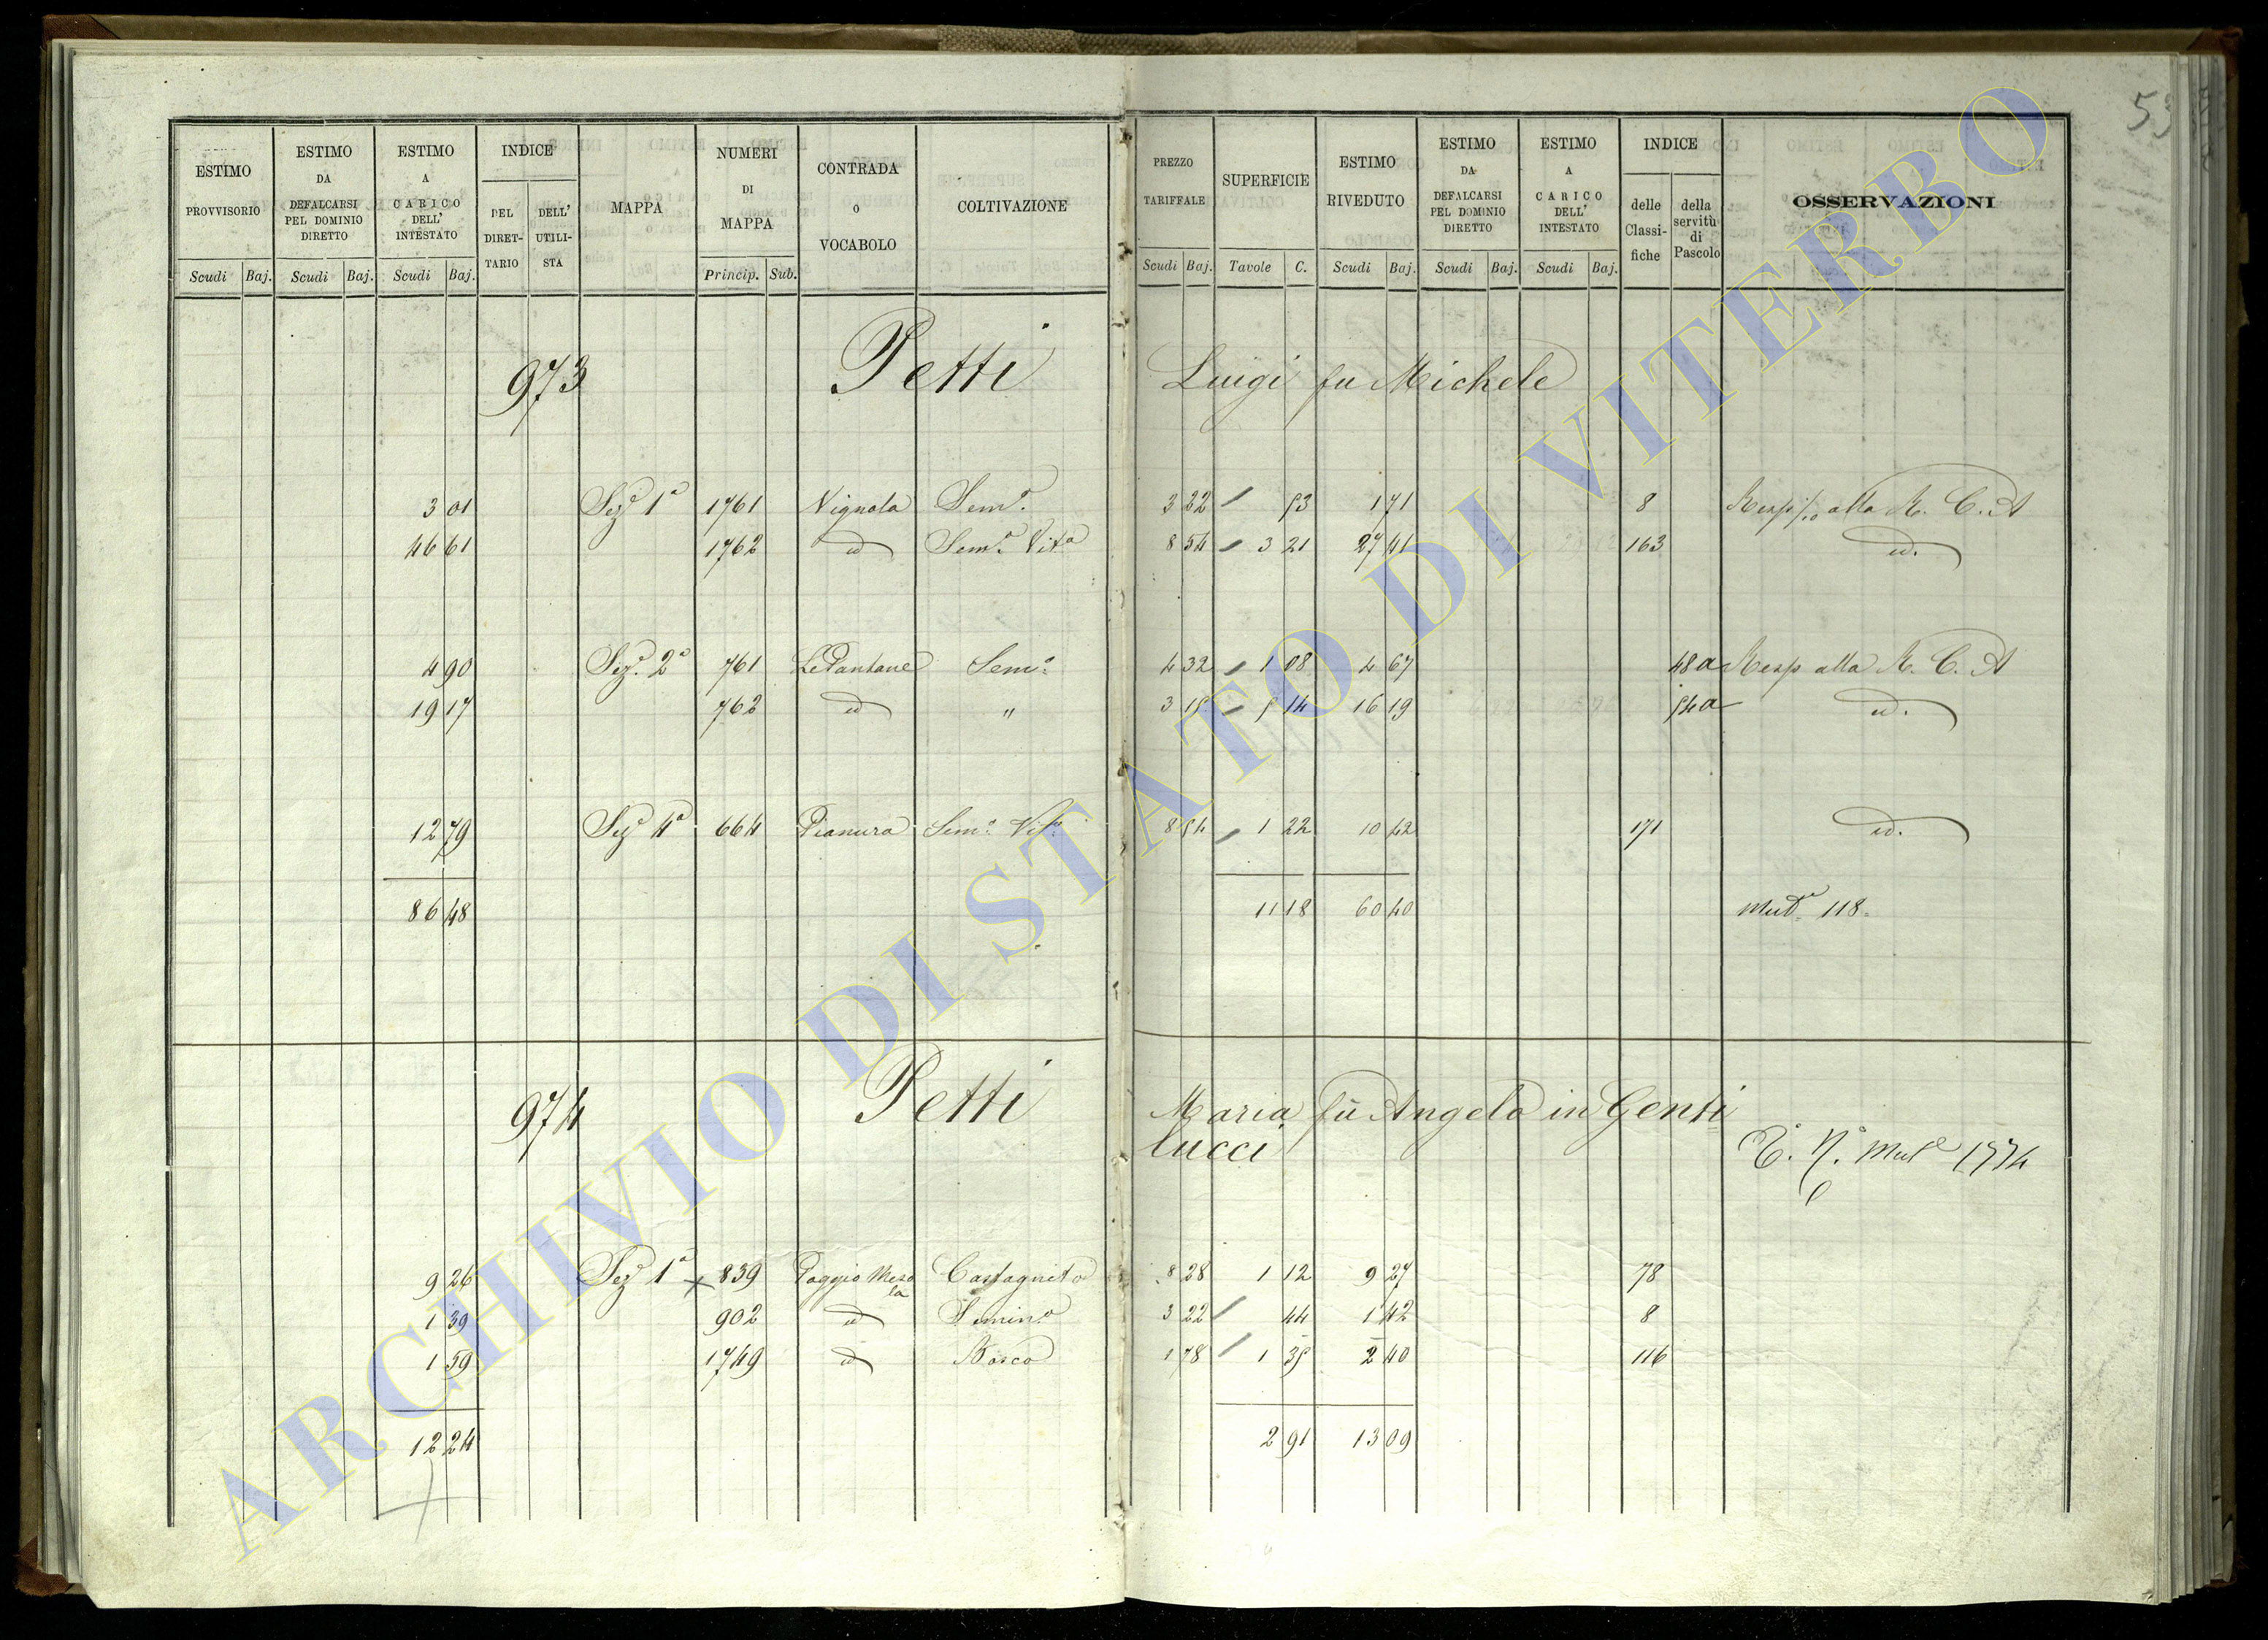 53
ESTIMO PROVVISORIO
ESTIMO DA DEFALCARSI PEL DOMINIO DIRETTO
ESTIMO A CARICO DELL' INTESTATO
INDICE
DEL DIRET-TARIO
DELL' UTILI-STA
MAPPA
NUMERI DI MAPPA
CONTRADA O VOCABOLO
COLTIVAZIONE
PREZZO TARIFFALE
SUPERFICIE
ESTIMO RIVEDUTO
ESTIMO DA DEFALCARSI PEL DOMINIO DIRETTO
ESTIMO A CARICO DELL' INTESTATO
INDICE
delle Classi-fiche
della servitù di Pascolo
OSSERVAZIONI
Scudi Baj. Scudi Baj. Scudi Baj. Princip. Sub. Scudi Baj. Tavole C. Scudi Baj. Scudi Baj. Scudi Baj.
973 Petti Luigi fu Michele
3 01 Sez. 1a 1761 Vignola Sem.o 3 22 53 1 71 8 alla R. C. A
46 61 1762 id Sem.o Vit.o 8 54 3 21 27 41 163 id.
4 90 Sez. 2a 761 Le Pantane Sem.o 4 32 1 08 4 67 48a Resp alla R. C. A
19 17 762 id " 3 15 5 14 16 19 54a id.
12 79 Sez. 4a 664 Pianura Sem.o Vit.o 8 54 1 22 10 42 171 id.
86 48 11 18 60 40 Mut.a 118
974 Petti Maria fu Angelo in Genti
lucci
Mut.e 1774
9 26 Sez. 1a + 839 Poggio Meso
la Castagneto 8 28 1 12 9 27 78
1 39 902 id Semin.o 3 22 44 1 42 8
1 59 1749 id Bosco 1 78 1 35 2 40 116
12 24 2 91 13 09
ARCHIVIO DI STATO DI VITERBO